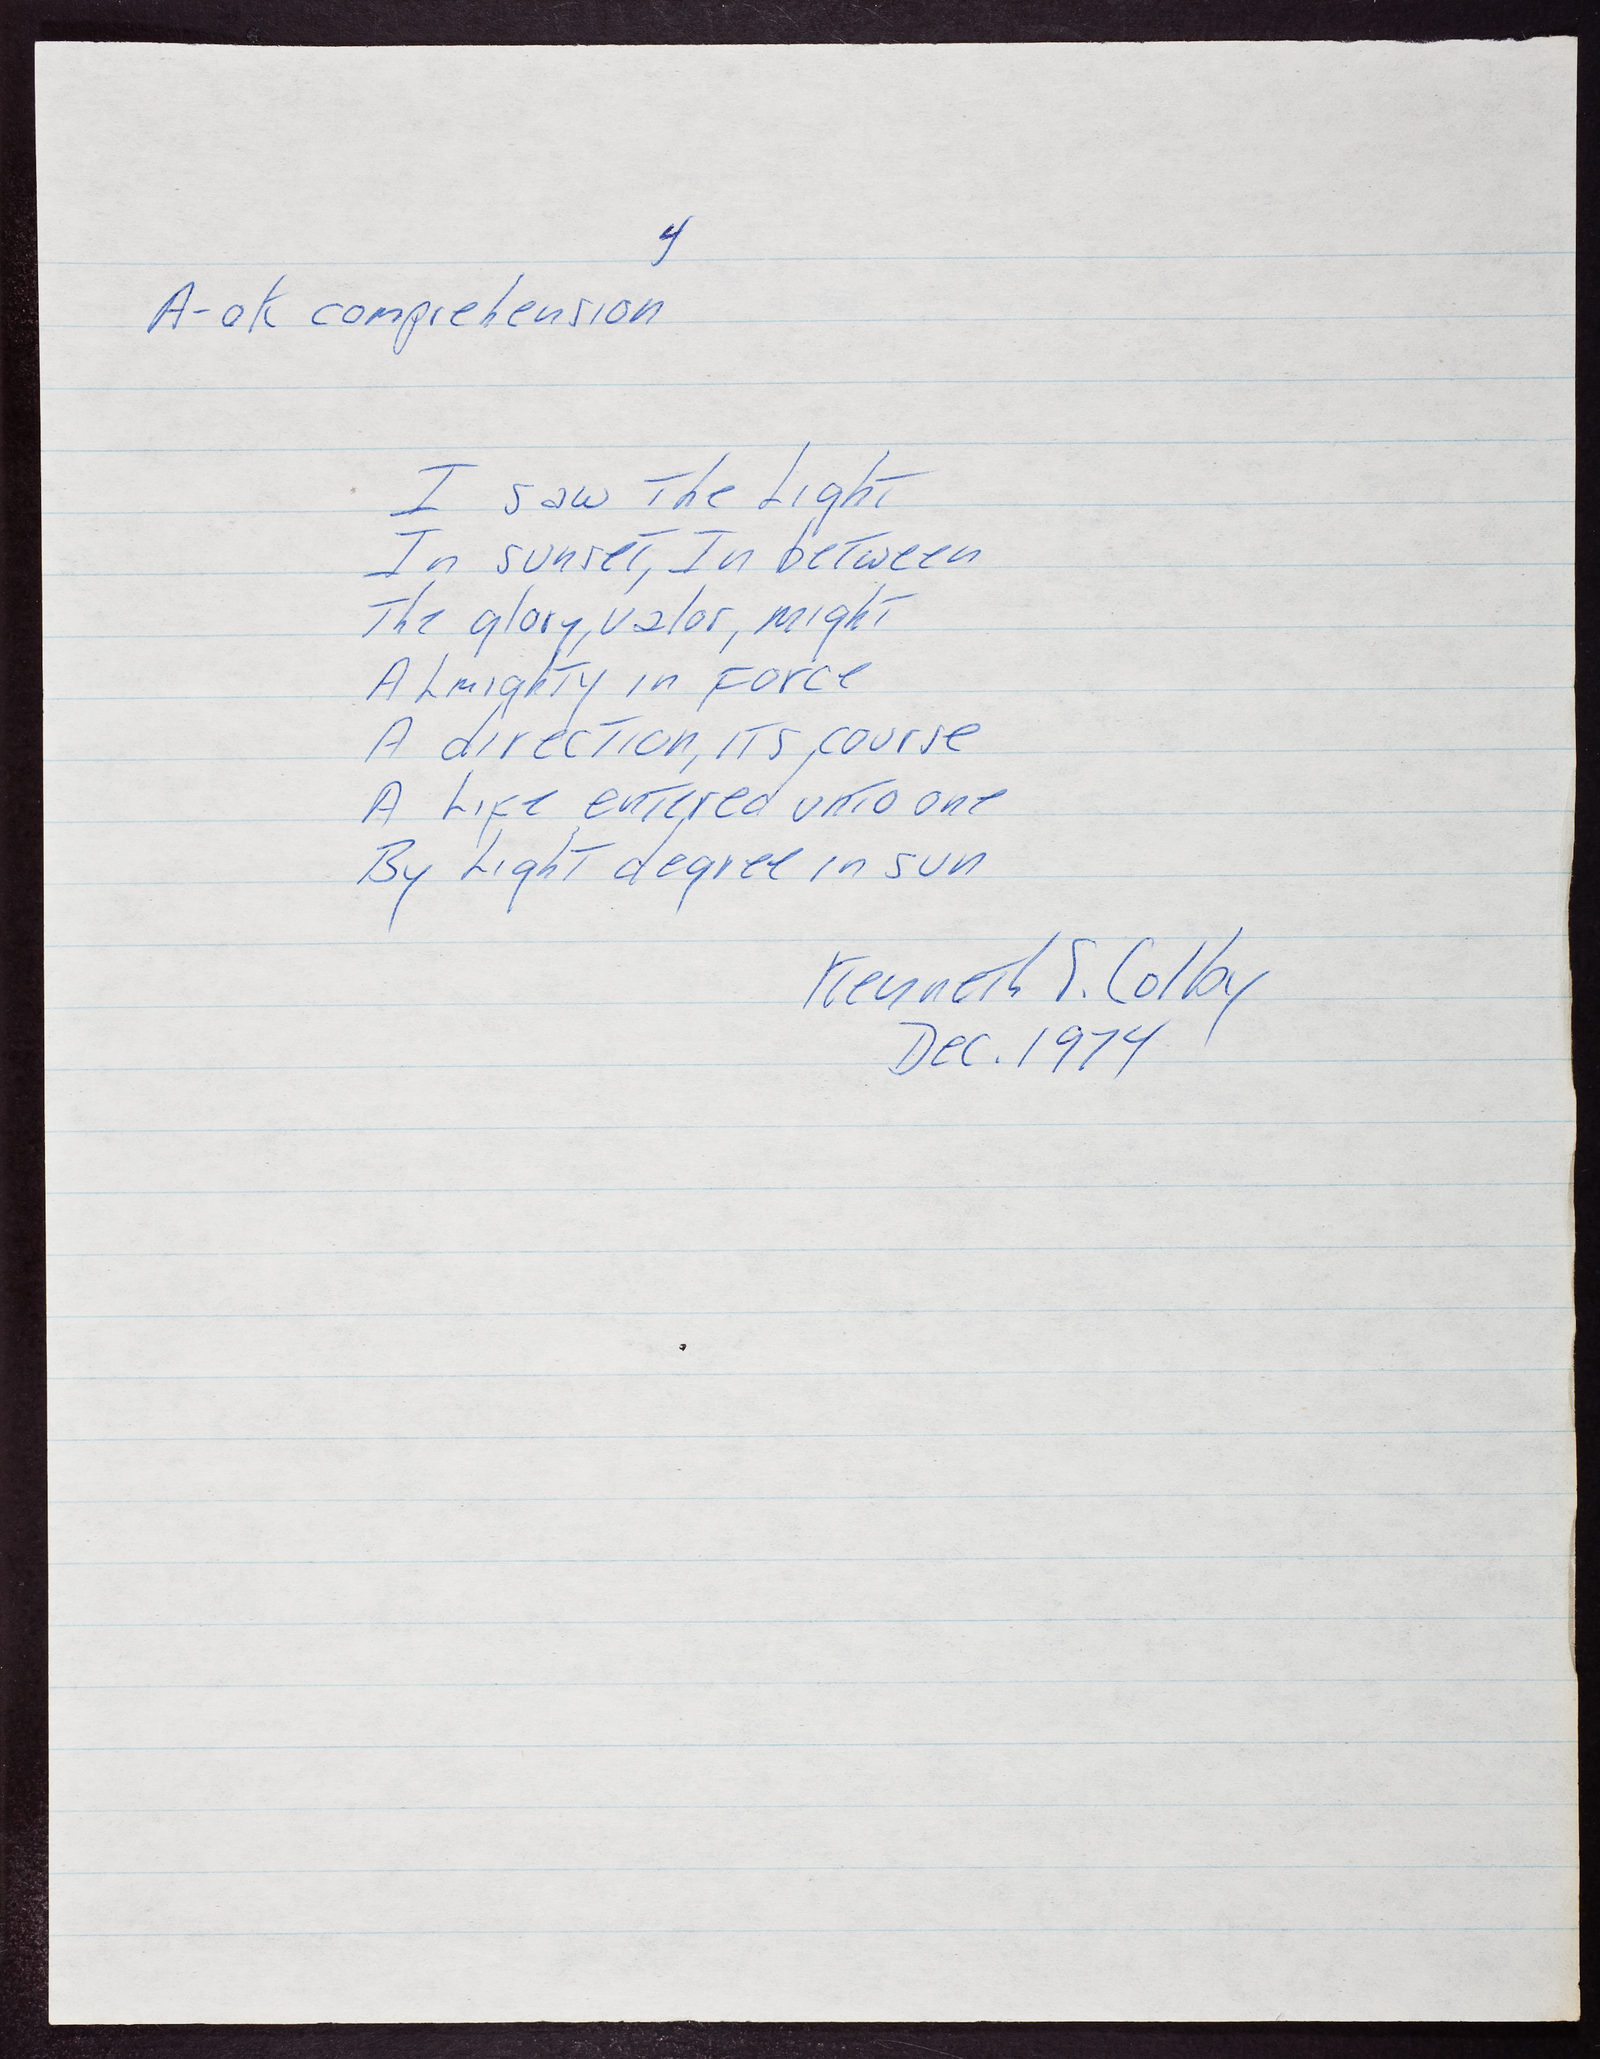 4
A-ok comprehension
I saw the Light
In sunset, In between
The glory, valor, might
ALmighty in Force
A direction, its course
A Life entered unto one
By Light degree in sun
Kenneth S. Colby
Dec. 1974